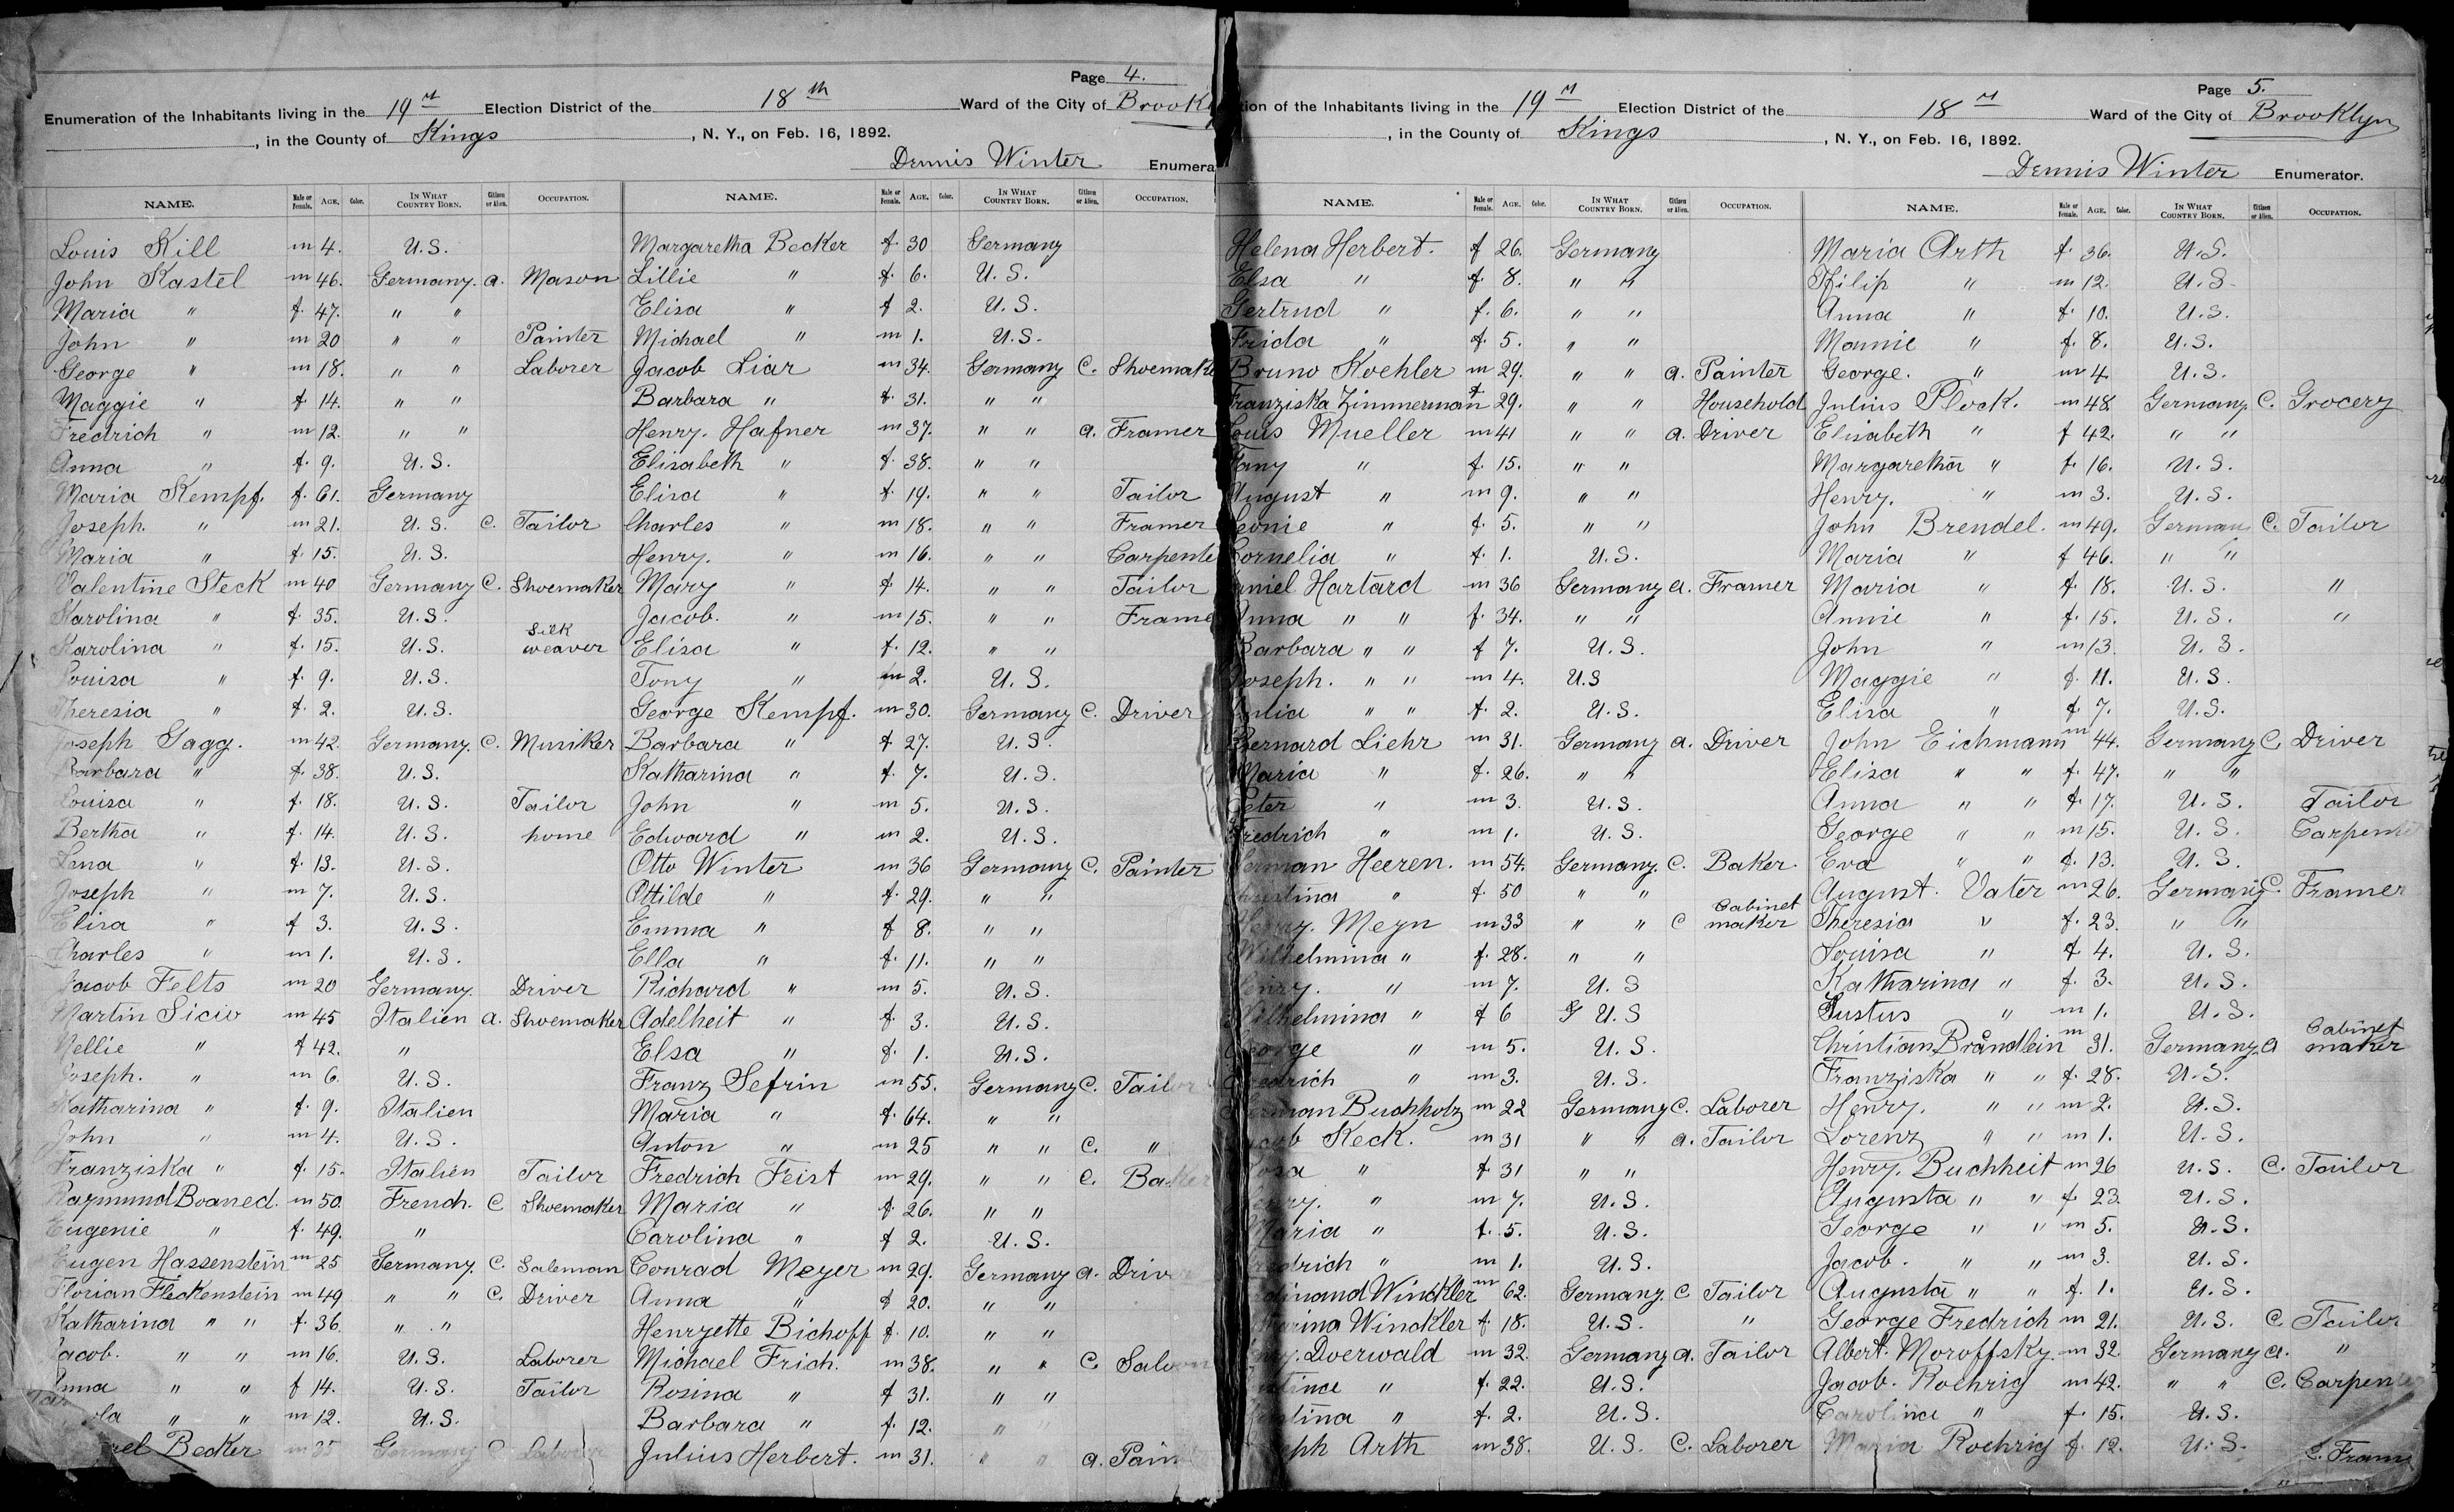 Page 4.
Enumeration of the Inhabitants living in the 19th Election District of the 18th Ward of the City of Brook
, in the County of Kings , N. Y., on Feb. 16, 1892.
Dennis Winter Enumera
NAME. Male or Female. AGE. Color. IN WHAT COUNTRY BORN. Citizen or Alien. OCCUPATION.
Louis Kill m 4. U.S.
John Kastel m 46. Germany. a. Mason
Maria " f. 47. " "
John " m 20 " " Painter
George " m 18. " " Laborer
Maggie " f 14. " "
Fredrich " m 12. " "
Anna " f. 9. U.S.
Maria Kempf. f. 61. Germany
Joseph. " m 21. U.S. C. Tailor
Maria " f. 15. U.S.
Valentine Steck m 40 Germany C. Shoemaker
Karolina " f. 35. U.S.
Karolina " f. 15. U.S. Silk weaver
Louisa " f. 9. U.S.
Theresia " f. 2. U.S.
Joseph Gagg. m 42. Germany. C. Musiker
Barbara " f. 38. U.S.
Louisa " f. 18. U.S. Tailor
Bertha " f. 14. U.S. home
Lena " f. 13. U.S.
Joseph " m 7. U.S.
Elisa " f 3. U.S.
Charles " m 1. U.S.
Jacob Felts m 20 Germany. Driver
Martin Sicio m 45 Italien a. Shoemaker
Nellie " f 42. "
Joseph. " m 6. U.S.
Katharina " f. 9. Italien
John " m 4. U.S.
Franziska " f. 15. Italien Tailor
Raymund Boaned. m 50. French. C Shoemaker
Eugenie " f. 49. "
Eugen Hassenstein m 25 Germany. C. Saleman
Florian Fleckenstein m 49 " " C. Driver
Katharina " " f. 36 " "
Jacob. " " m 16. U.S. Laborer
Anna " " f 14. U.S. Tailor
" " m 12. U.S.
Becker m 35 Germany C Laborer
NAME. Male or Female. AGE. Color. IN WHAT COUNTRY BORN. Citizen or Alien. OCCUPATION.
Margaretha Becker f. 30 Germany
Lillie " f. 6. U.S.
Elisa " f 2. U.S.
Michael " m 1. U.S.
Jacob Liar m 34. Germany C. Shoemake
Barbara " f. 31. " "
Henry. Hafner m 37. " " a. Framer
Elisabeth " f. 38. " "
Elisa " f. 19. " " Tailor
Charles " m 18. " " Framer
Henry. " m 16. " " Carpente
Mary " f 14. " " Tailor
Jacob. " m 15. " " Frame
Elisa " f. 12. " "
Tony " m 2. U.S.
George Kempf. m 30. Germany C. Driver
Barbara " f. 27. U.S.
Katharina " f. 7. U.S.
John " m 5. U.S.
Edward " m 2. U.S.
Otto Winter m 36 Germany C. Painter
Ottilde " f. 29. " "
Emma " f 8. " "
Ella " f. 11. " "
Richard " m 5. U.S.
Adelheit " f. 3. U.S.
Elsa " f. 1. U.S.
Franz Sefrin m 55. Germany C. Tailor
Maria " f. 64. " "
Anton " m 25 " " C. "
Fredrich Feist m 29. " " C. Baker
Maria " f. 26. " "
Carolina " f 2. U.S.
Conrad Meyer m 29. Germany a. Driver
Anna " f 20. " "
Henryette Bichoff f. 10. " "
Michael Frich. m 38. " " C. Saloon
Rosina " f 31. " "
Barbara " f. 12. "
Julius Herbert. m 31. " " a. Pain
Page 5.
tion of the Inhabitants living in the 19th Election District of the 18th Ward of the City of Brooklyn
, in the County of Kings , N. Y., on Feb. 16, 1892.
Dennis Winter Enumerator.
NAME. Male or Female. AGE. Color. IN WHAT COUNTRY BORN. Citizen or Alien. OCCUPATION.
Helena Herbert. f 26. Germany
Elsa " f. 8. " "
Gertrud " f. 6. " "
Frida " f. 5. " "
Bruno Koehler m 29. " " a. Painter
Franziska Zimmerman f 29. " " Household
Louis Mueller m 41 " " a. Driver
Fany " f. 15. " "
August " m 9. " "
Leonie " f. 5. " "
Cornelia " f. 1. U.S.
Daniel Hartard m 36 Germany a. Framer
Anna " " f. 34. " "
Barbara " " f 7. U.S.
Joseph. " " m 4. U.S
" " f. 2. U.S.
Bernard Liehr m 31. Germany a. Driver
Maria " f. 26. " "
Peter " m 3. U.S.
Fredrich " m 1. U.S.
Herman Heeren. m 54. Germany. C. Baker
" f. 50 " "
Henry. Meyn m 33 " " C Cabinet maker
Wilhelmina " f. 28. " "
Henry. " m 7. U.S
Wilhelmina " f 6 U.S
George " m 5. U.S.
Fredrich " m 3. U.S.
Herman Buchholz m 22 Germany C. Laborer
Jacob Keck. m 31 " " a. Tailor
Rosa " f 31 " "
Henry. " m 7. U.S.
Maria " f. 5. U.S.
Fredrich " m 1. U.S.
Ferdinand Winckler m 62. Germany. C Tailor
Winckler f. 18. U.S. "
Henry. Doerwald m 32. Germany a. Tailor
" f. 22. U.S.
" f. 2. U.S.
Joseph Arth m 38. U.S. C. Laborer
NAME. Male or Female. AGE. Color. IN WHAT COUNTRY BORN. Citizen or Alien. OCCUPATION.
Maria Arth f. 36. U.S.
Philip " m 12. U.S.
Anna " f. 10. U.S.
Mamie " f. 8. U.S.
George. " m 4. U.S.
Julius Plock. m 48. Germany. C. Grocery
Elisabeth " f 42. " "
Margaretha " f. 16. U.S.
Henry. " m 3. U.S.
John Brendel. m 49. German C. Tailor
Maria " f 46. " "
Maria " f. 18. U.S. "
Annie " f. 15. U.S. "
John " m 13. U.S.
Maggie " f. 11. U.S.
Elisa " f. 7. U.S.
John Eichmann m 44. Germany C. Driver
Elisa " " f. 47. " "
Anna " " f. 17. U.S. Tailor
George " " m 15. U.S. Carpenter
Eva " " f. 13. U.S.
August. Vater m 26. Germany C. Framer
Theresia " f. 23. " "
Louisa " f 4. U.S.
Katharina " f. 3. U.S.
Justus " m 1. U.S.
Christian Brändlein m 31. Germany a Cabinet maker
Franziska " " f. 28. U.S.
Henry. " " m 2. U.S.
Lorenz " " m 1. U.S.
Henry. Buchheit m 26 U.S. C. Tailor
Augusta " " f 23. U.S.
George " " m 5. U.S.
Jacob. " " m 3. U.S.
Augusta " " f. 1. U.S.
George Fredrich m 21. U.S. C. Tailor
Albert. Moroffsky. m 32. Germany a. "
Jacob. Roehrig m 42. " " C. Carpen
Carolina " f. 15. U.S.
Maria Roehrig f. 12. U.S.
C. Fram